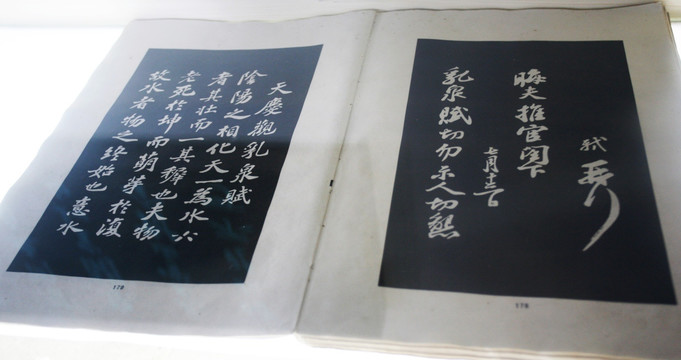 軾再拜
晦夫推官閣下
七月十三日
乳泉賦切勿示人切懇
178
天慶觀乳泉賦
陰陽之相化天一為水六
者其壯而一其穉也夫物
老死於坤而萌芽於復
故水者物之終始也意水
179